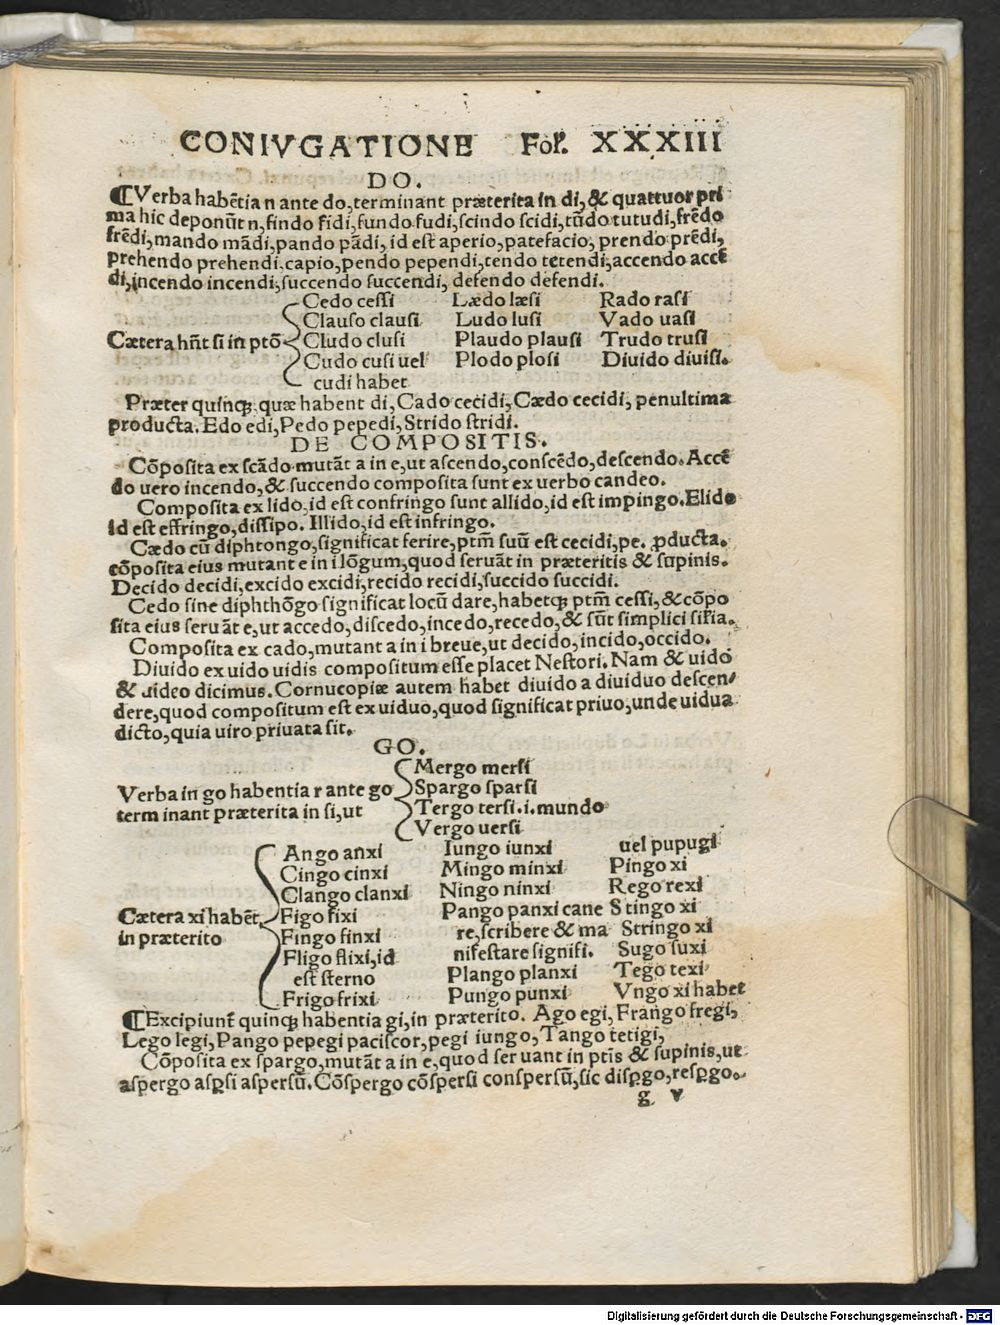 CONIVGATIONE Fol. XXXIII
DO.
¶Verba habẽtia n ante do, terminant præterita in di, & quattuor pri
ma hic deponũt n, findo fidi, fundo fudi, scindo scidi, tũdo tutudi, frẽdo
frẽdi, mando mãdi, pando pãdi, id est aperio, patefacio, prendo prẽdi,
prehendo prehendi, capio, pendo pependi, tendo tetendi, accendo accẽ
di, incendo incendi, succendo succendi, defendo defendi.
Cedo cessi Lædo læsi Rado rasi
Clauso clausi Ludo lusi Vado uasi
Cætera hñt si in ptõ Cludo clusi Plaudo plausi Trudo trusi
Cudo cusi uel Plodo plosi Diuido diuisi.
cudi habet
Præter quinqꝫ quæ habent di, Cado cecidi, Cædo cecidi, penultima
producta. Edo edi, Pedo pepedi, Strido stridi.
DE COMPOSITIS.
Cõposita ex scãdo mutãt a in e, ut ascendo, conscẽdo, descendo. Accẽ
do uero incendo, & succendo composita sunt ex uerbo candeo.
Composita ex lido, id est confringo sunt allido, id est impingo. Elido
id est effringo, dissipo. Illido, id est infringo.
Cædo cũ diphtongo, significat ferire, ptm̃ suũ est cecidi, pe. ꝓducta.
cõposita eius mutant e in i lõgum, quod seruãt in præteritis & supinis.
Decido decidi, excido excidi, recido recidi, succido succidi.
Cedo sine diphthõgo significat locũ dare, habetqꝫ ptm̃ cessi, & cõpo
sita eius seruãt e, ut accedo, discedo, incedo, recedo, & sũt simplici sił'ia.
Composita ex cado, mutant a in i breue, ut decido, incido, occido.
Diuido ex uido uidis compositum esse placet Nestori. Nam & uido
& uideo dicimus. Cornucopiæ autem habet diuido a diuiduo descen/
dere, quod compositum est ex uiduo, quod significat priuo, unde uidua
dicto, quia uiro priuata sit.
GO.
Mergo mersi
Verba in go habentia r ante go Spargo sparsi
term inant præterita in si, ut Tergo tersi. i. mundo
Vergo uersi
Ango anxi Iungo iunxi uel pupugi
Cingo cinxi Mingo minxi Pingo xi
Clango clanxi Ningo ninxi Rego rexi
Cætera xi habẽt Figo fixi Pango panxi cane Stingo xi
in præterito Fingo finxi re, scribere & ma Stringo xi
Fligo flixi, id nifestare signifi. Sugo suxi
est sterno Plango planxi Tego texi
Frigo frixi Pungo punxi Vngo xi habet
¶Excipiunt̃ quinqꝫ habentia gi, in præterito. Ago egi, Frango fregi,
Lego legi, Pango pepegi paciscor, pegi iungo, Tango tetigi,
Cõposita ex spargo, mutãt a in e, quod ser uant in ptis̃ & supinis, ut
aspergo aspꝑsi aspersũ. Cõspergo cõspersi conspersũ, sic disꝑgo, resꝑgo.
g v
Digitalisierung gefördert durch die Deutsche Forschungsgemeinschaft - DFG